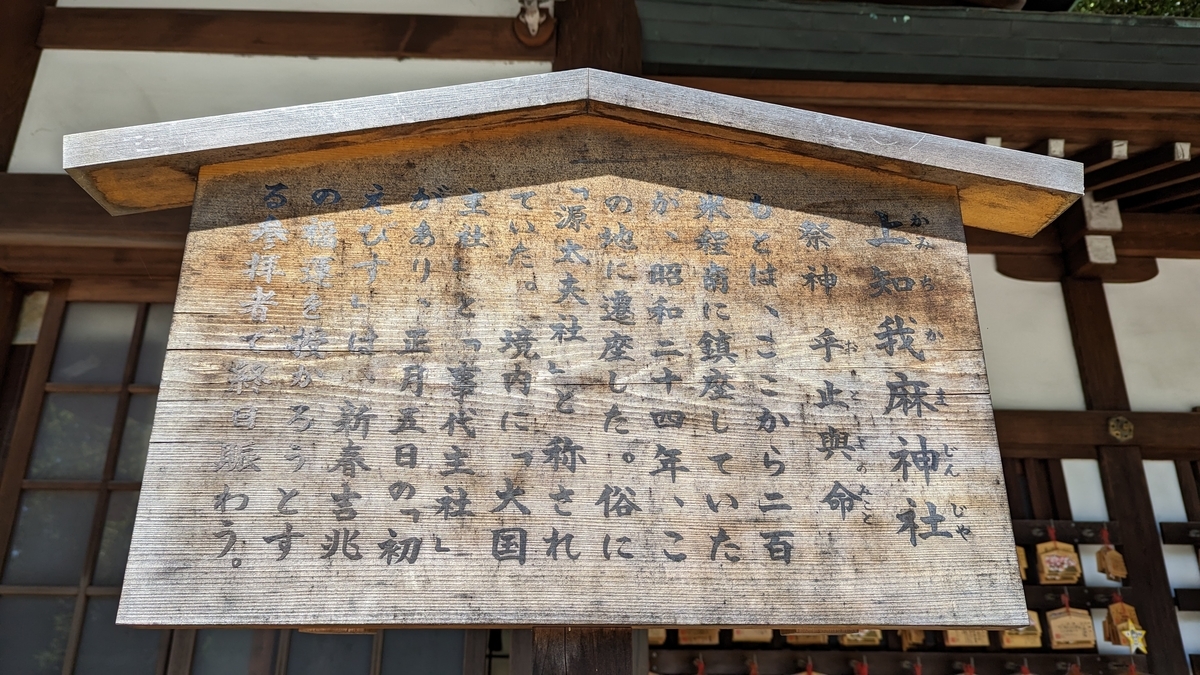 上知我麻神社
かみちかまじんじゃ
祭神 乎止與命
おとよのみこと
もとは、ここから二百
米程南に鎮座していた
が、昭和二十四年、こ
の地に遷座した。俗に
「源太夫社」と称され
ていた。境内に「大国
主社」と「事代主社」
があり、正月五日の「初
えびす」は、新春吉兆
の福運を授かろうとす
る参拝者で終日賑わう。